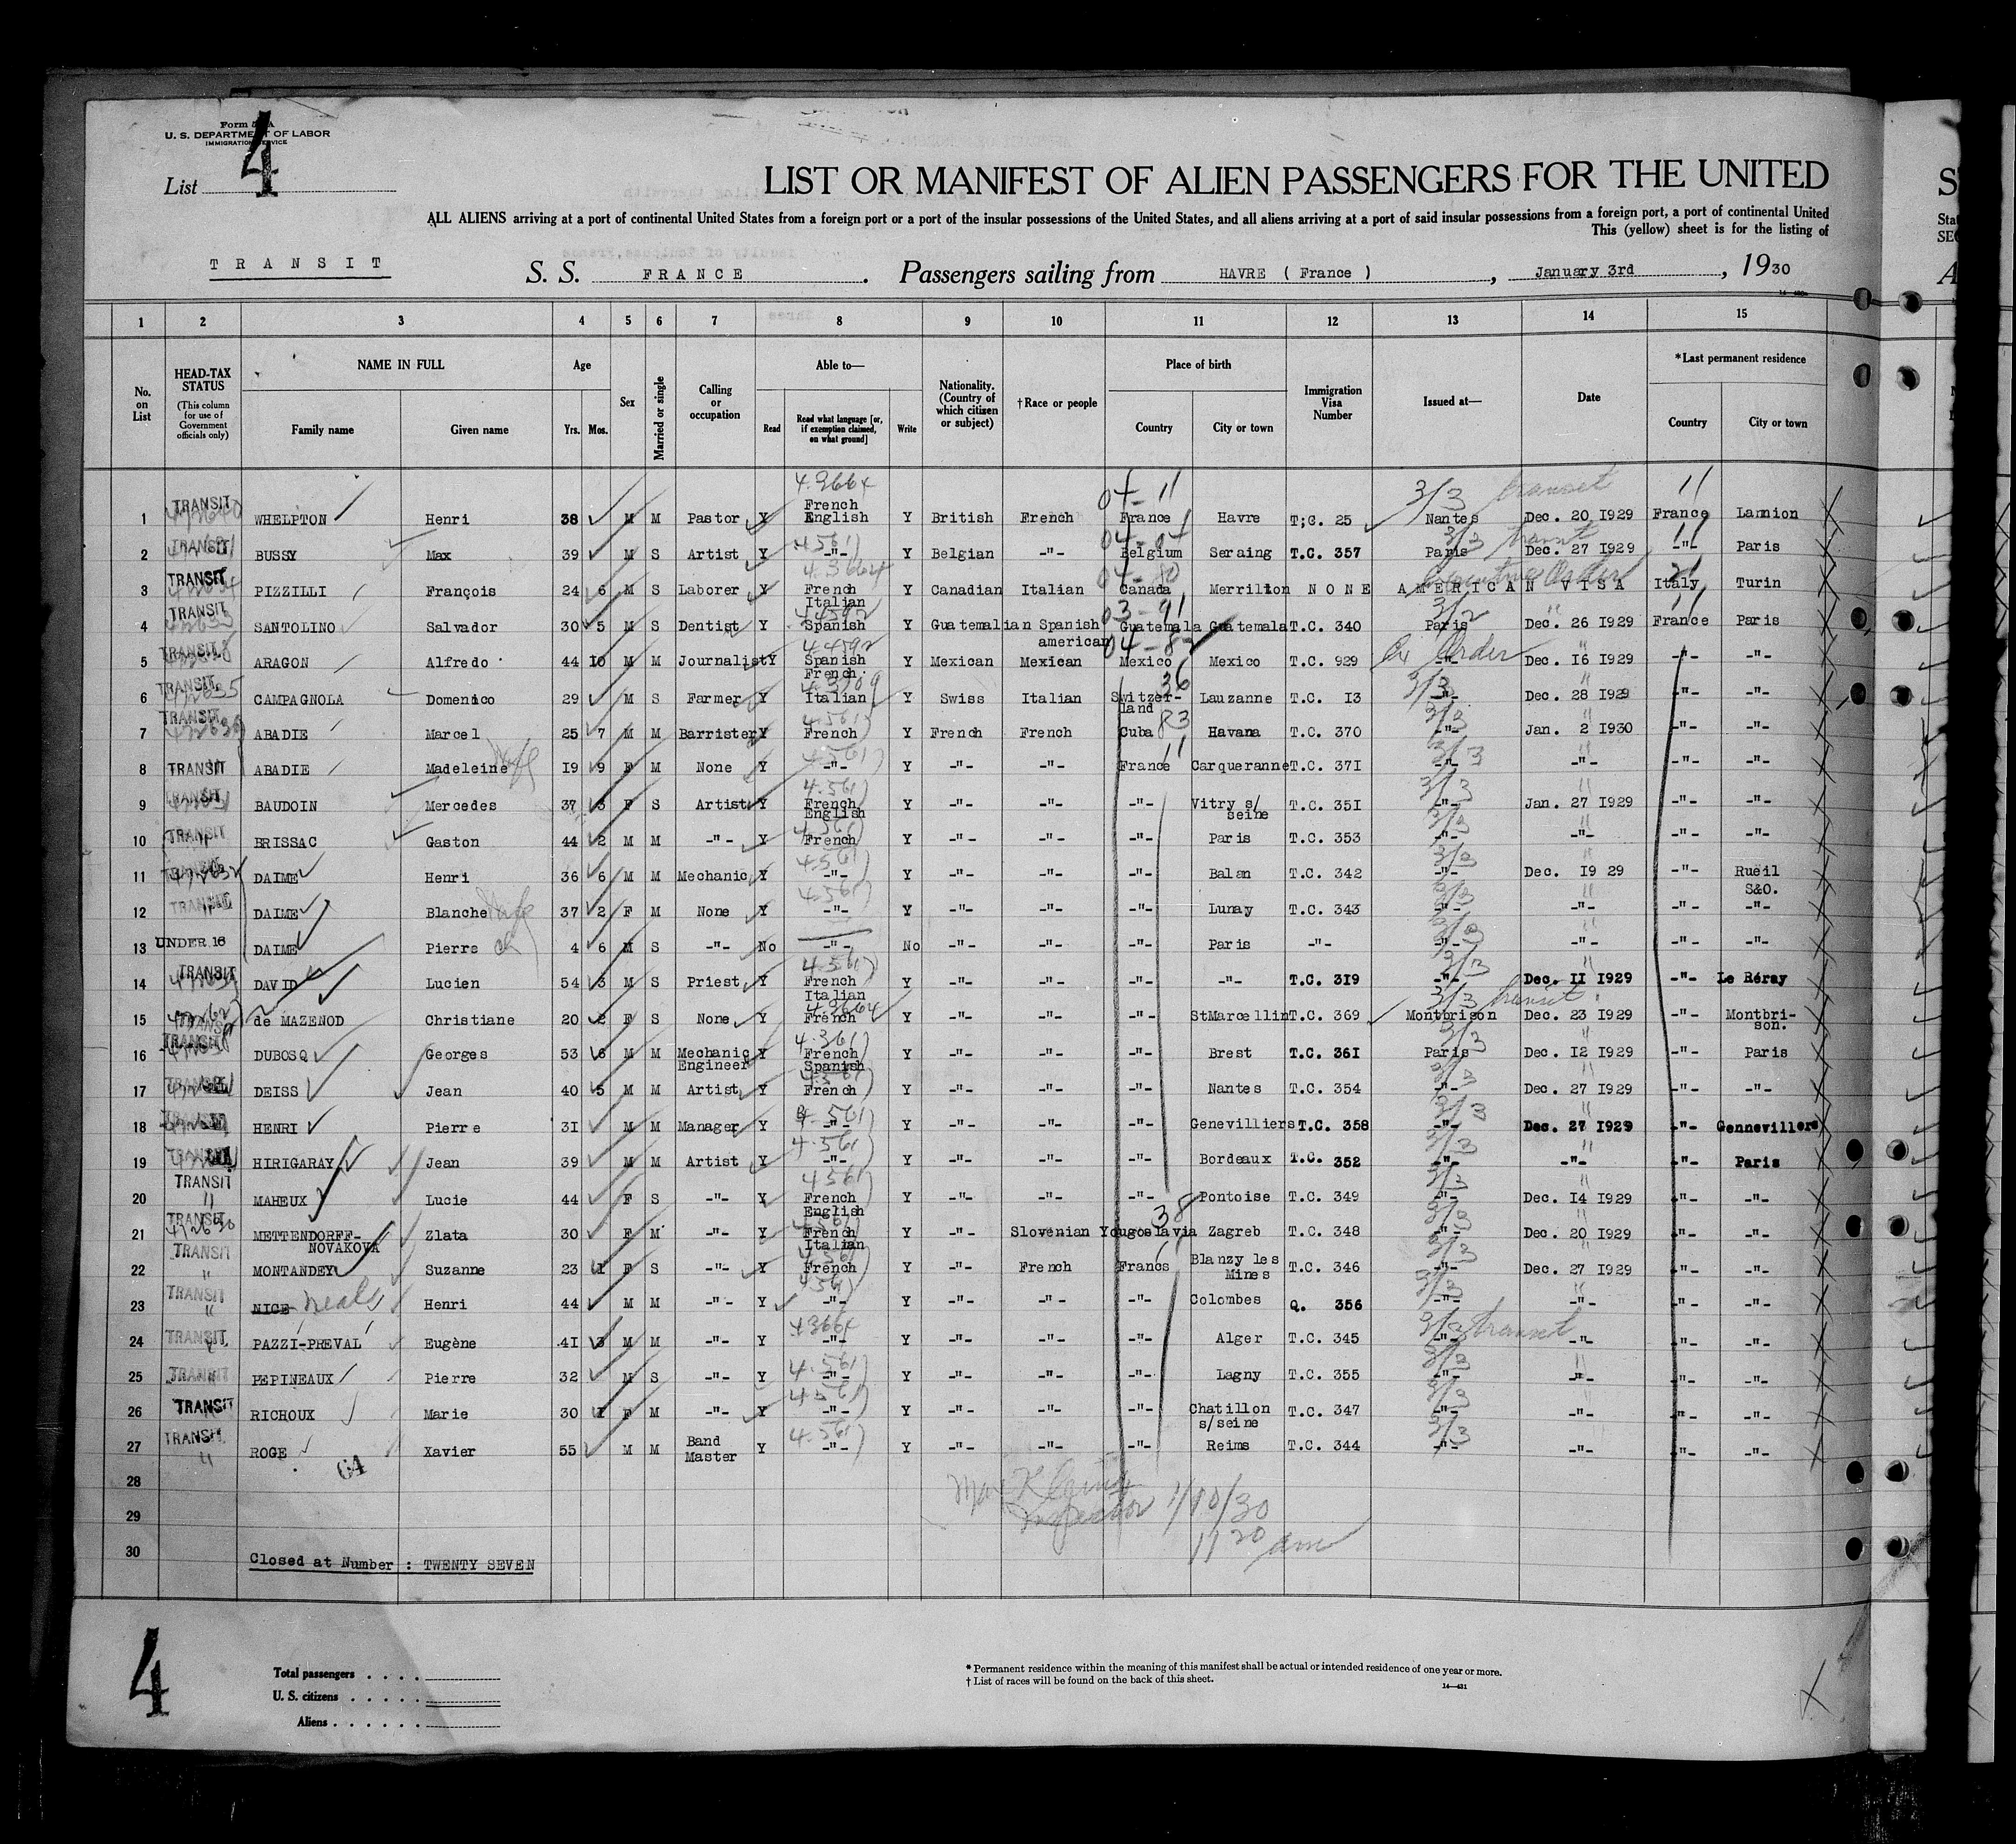 Form 5 A
U. S. DEPARTMENT OF LABOR
IMMIGRATION SERVICE
List 4
LIST OR MANIFEST OF ALIEN PASSENGERS FOR THE UNITED
ALL ALIENS arriving at a port of continental United States from a foreign port or a port of the insular possessions of the United States, and all aliens arriving at a port of said insular possessions from a foreign port, a port of continental United
This (yellow) sheet is for the listing of
TRANSIT S. S. FRANCE. Passengers sailing from HAVRE ( France ), January 3rd, 1930
1 2 3 4 5 6 7 8 9 10 11 12 13 14 15
No. on List
HEAD-TAX STATUS
(This column for use of Government officials only)
NAME IN FULL
Family name Given name
Age
Yrs. Mos.
Sex
Married or single
Calling or occupation
Able to—
Read Read what language [or, if exemption claimed, on what ground] Write
Nationality. (Country of which citizen or subject)
†Race or people
Place of birth
Country City or town
Immigration Visa Number
Issued at—
Date
*Last permanent residence
Country City or town
1 TRANSIT WHELPTON Henri 38 M M Pastor Y French English Y British French France Havre T;C. 25 Nantes Dec. 20 I929 France Lannion
2 TRANSIT BUSSY Max 39 M S Artist Y -"- Y Belgian -"- Belgium Seraing T.C. 357 Paris Dec. 27 I929 -"- Paris
3 TRANSIT PIZZILLI François 24 6 M S Laborer Y French Italian Y Canadian Italian Canada Merrilton NONE AMERICAN VISA Italy Turin
4 TRANSIT SANTOLINO Salvador 30 5 M S Dentist Y Spanish Y Guatemalian Spanish american Guatemala Guatemala T.C. 340 Paris Dec. 26 I929 France Paris
5 TRANSIT ARAGON Alfredo 44 IO M M Journalist Y Spanish French Y Mexican Mexican Mexico Mexico T.C. 929 -"- Dec. I6 I929 -"- -"-
6 TRANSIT CAMPAGNOLA Domenico 29 M S Farmer Y Italian Y Swiss Italian Switzer-land Lauzanne T.C. I3 -"- Dec. 28 I929 -"- -"-
7 TRANSIT ABADIE Marcel 25 7 M M Barrister Y French Y French French Cuba Havana T.C. 370 -"- Jan. 2 I930 -"- -"-
8 TRANSIT ABADIE Madeleine wife I9 9 F M None Y -"- Y -"- -"- France Carqueranne T.C. 37I -"- -"- -"- -"-
9 TRANSIT BAUDOIN Mercedes 37 F S Artist Y French English Y -"- -"- -"- Vitry s/ seine T.C. 35I -"- Jan. 27 I929 -"- -"-
10 TRANSIT BRISSAC Gaston 44 2 M M -"- Y French Y -"- -"- -"- Paris T.C. 353 -"- -"- -"- -"-
11 DAIME Henri 36 6 M M Mechanic Y -"- Y -"- -"- -"- Balan T.C. 342 -"- Dec. I9 29 -"- Rueil S&O.
12 TRANSIT DAIME Blanche wife 37 2 F M None Y -"- Y -"- -"- -"- Lunay T.C. 343 -"- -"- -"- -"-
13 UNDER 16 DAIME Pierre ch 4 6 M S -"- No -"- No -"- -"- -"- Paris -"- -"- -"- -"- -"-
14 TRANSIT DAVID Lucien 54 3 M S Priest Y French Italian Y -"- -"- -"- -"- T.C. 3I9 -"- Dec. II I929 -"- Le Réray
15 TRANSIT de MAZENOD Christiane 20 2 F S None Y French Y -"- -"- -"- StMarcellin T.C. 369 Montbrison Dec. 23 I929 -"- Montbri-son.
16 TRANSIT DUBOSQ Georges 53 6 M M Mechanic Engineer Y French Spanish Y -"- -"- -"- Brest T.C. 36I Paris Dec. I2 I929 -"- Paris
17 TRANSIT DEISS Jean 40 5 M M Artist Y French Y -"- -"- -"- Nantes T.C. 354 -"- Dec. 27 I929 -"- -"-
18 TRANSIT HENRI Pierre 3I M M Manager Y -"- Y -"- -"- -"- Genevilliers T.C. 358 -"- Dec. 27 I929 -"- Gennevillers
19 TRANSIT HIRIGARAY Jean 39 M M Artist Y -"- Y -"- -"- -"- Bordeaux T.C. 352 -"- -"- -"- Paris
20 TRANSIT MAHEUX Lucie 44 F S -"- Y French English Y -"- -"- -"- Pontoise T.C. 349 -"- Dec. I4 I929 -"- -"-
21 TRANSIT METTENDORFF-NOVAKOVA Zlata 30 F M -"- Y French Italian Y -"- Slovenian Yougoslavia Zagreb T.C. 348 -"- Dec. 20 I929 -"- -"-
22 TRANSIT MONTANDEY Suzanne 23 1 F S -"- Y French Y -"- French France Blanzy les Mines T.C. 346 -"- Dec. 27 I929 -"- -"-
23 TRANSIT NICE Henri 44 M M -"- Y -"- Y -"- -"- -"- Colombes Q. 356 -"- -"- -"- -"-
24 TRANSIT PAZZI-PREVAL Eugène 4I 3 M M -"- Y -"- Y -"- -"- -"- Alger T.C. 345 -"- -"- -"- -"-
25 TRANSIT PEPINEAUX Pierre 32 M S -"- Y -"- Y -"- -"- -"- Lagny T.C. 355 -"- -"- -"- -"-
26 TRANSIT RICHOUX Marie 30 1 F M -"- Y -"- Y -"- -"- -"- Chatillon s/seine T.C. 347 -"- -"- -"- -"-
27 TRANSIT ROGE Xavier 55 M M Band Master Y -"- Y -"- -"- -"- Reims T.C. 344 -"- -"- -"- -"-
28
29
30
Inspector 1/10/30
11 20 am
Closed at Number : TWENTY SEVEN
4
Total passengers
U. S. citizens
Aliens
* Permanent residence within the meaning of this manifest shall be actual or intended residence of one year or more.
† List of races will be found on the back of this sheet.
14—431